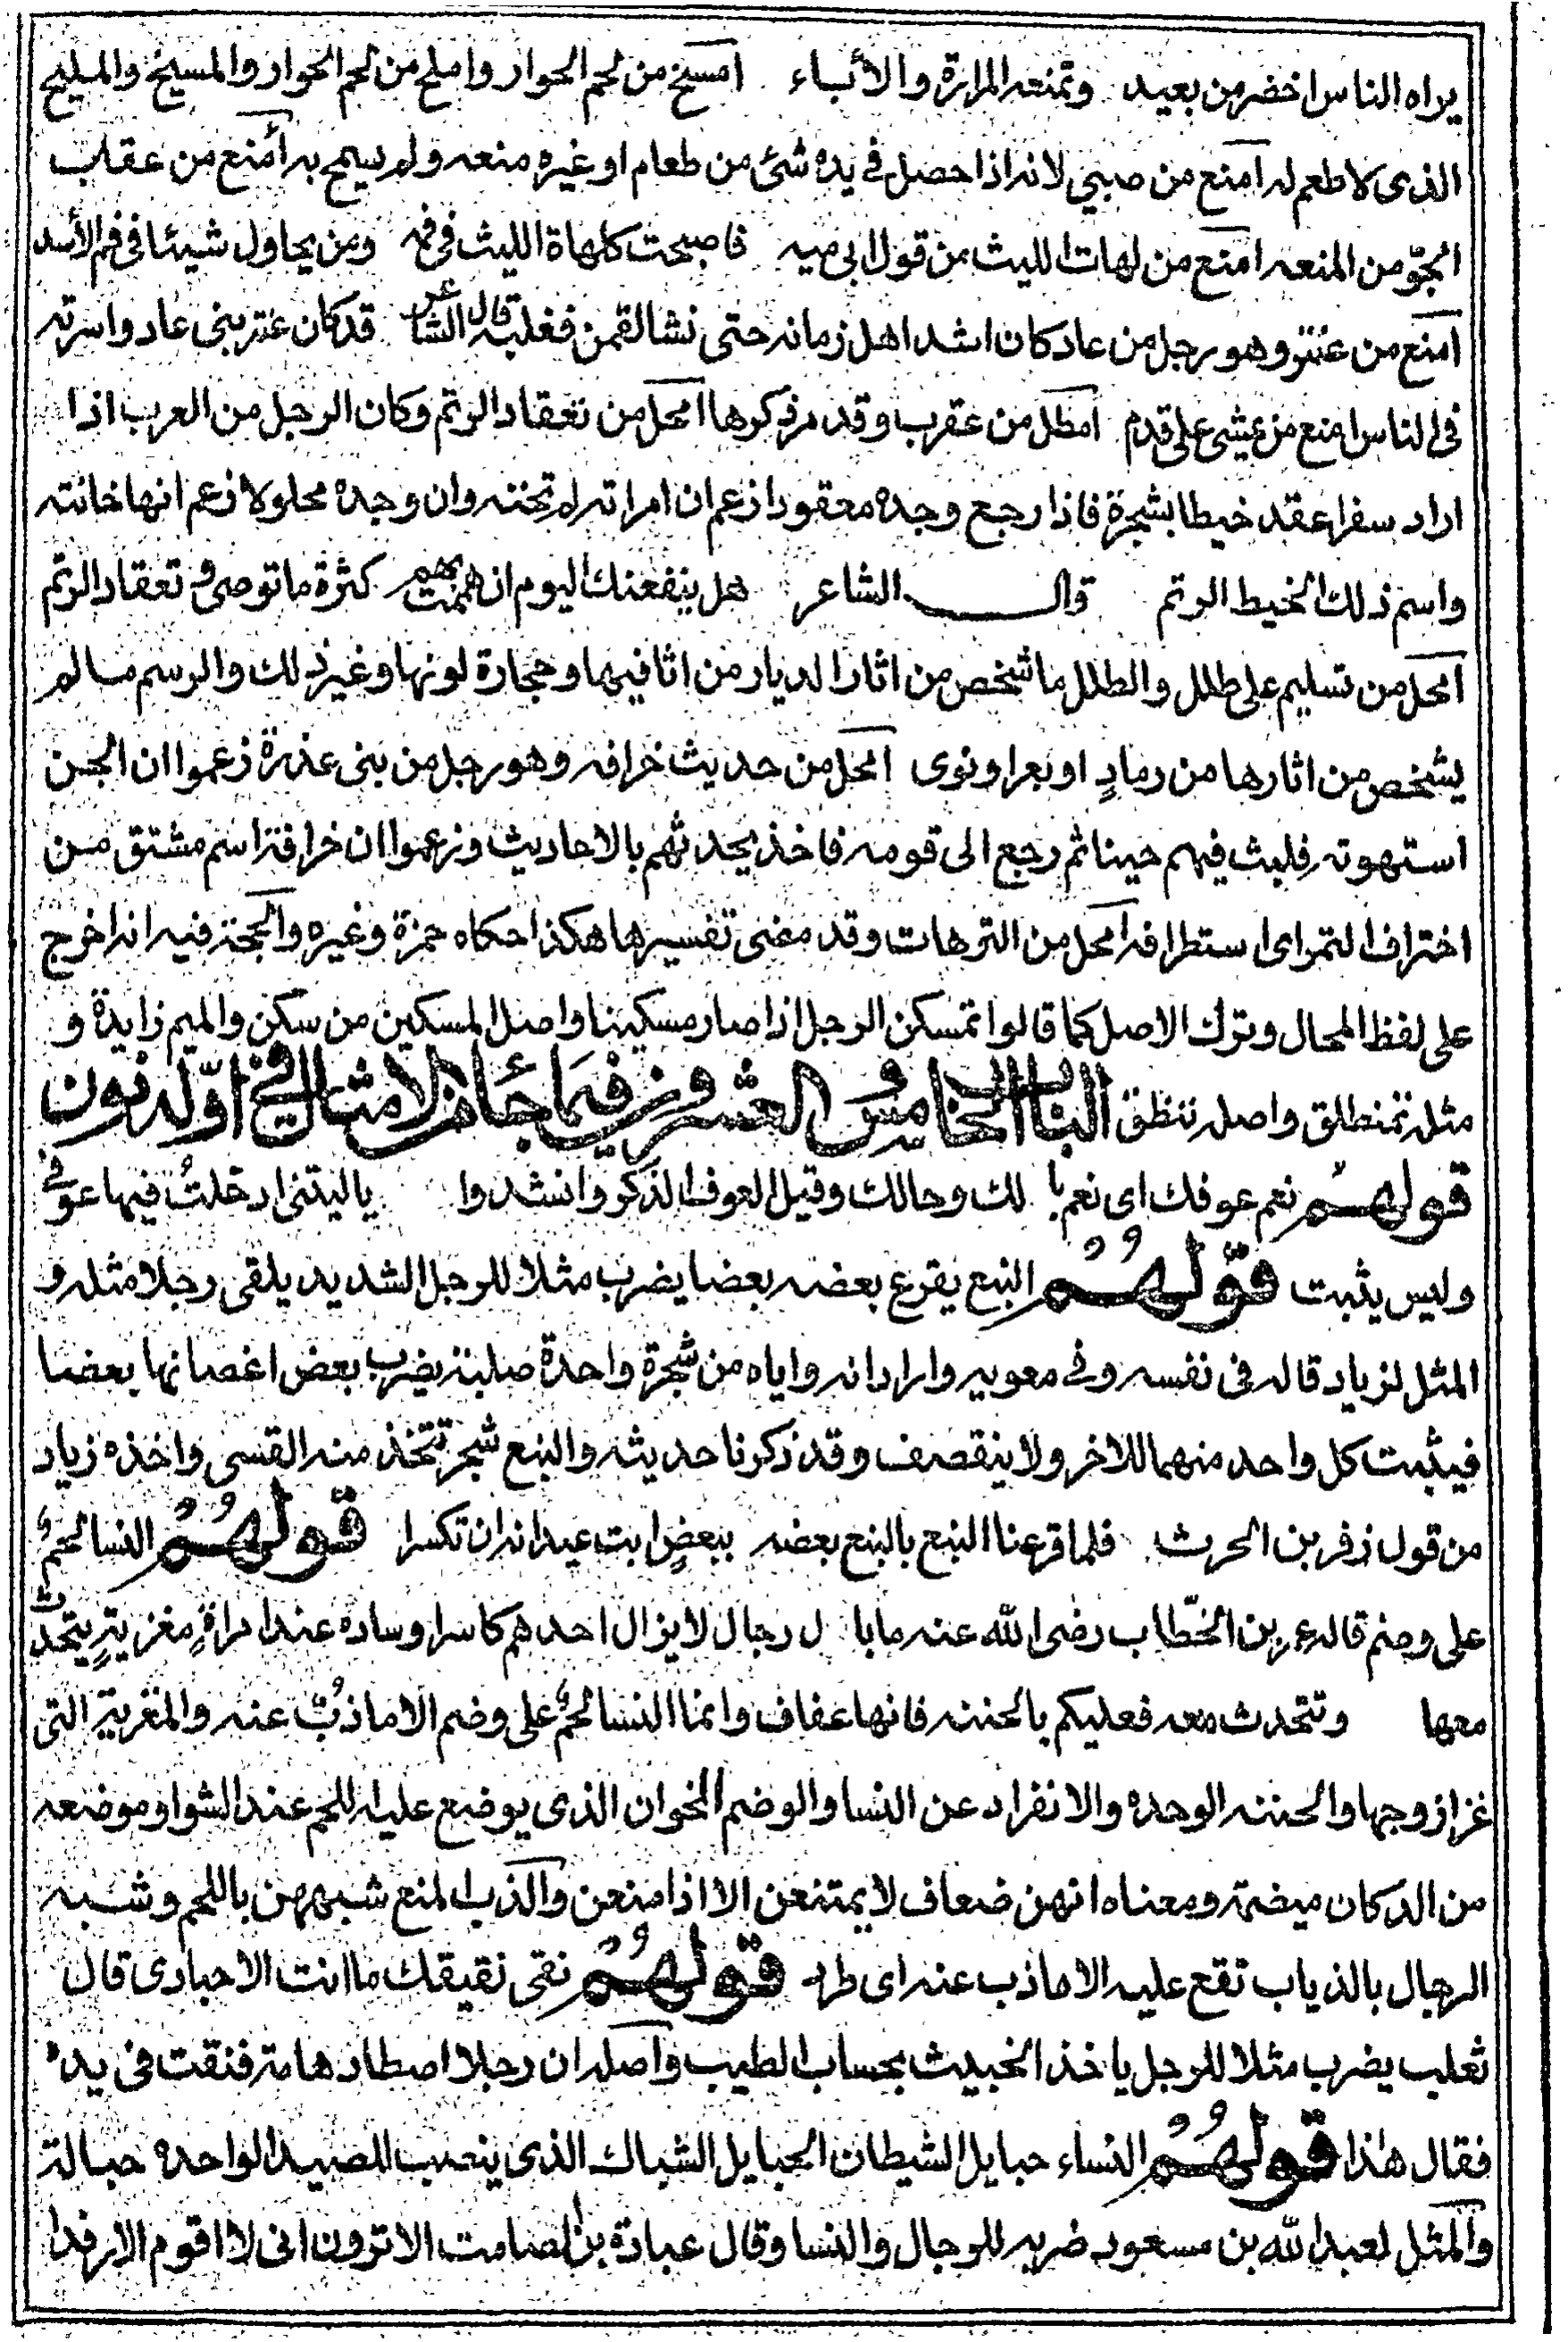 يراه الناس اخضر من بعيد وتمنعه المرارة والأباء امسخ من لحم الحوار واملح من لحم الحوار والمسيخ والمليح
الذى لا طعم له امنع من صبي لانه اذا حصل فى يده شئ من طعام او غيره منعه ولم يسمح به أمنع من عقاب
الجوّ من المنعه امنع من لهات الليث من قول ابى حيه فاصبحت كلهاة الليث فى فمه ومن يحاول شيئا فى فم الأسد
امنع من عنتر وهو رجل من عاد كان اشد اهل زمانه حتى نشا لقمن فغلبه قال الشاعر قد كان عتر بنى عاد واسرته
فى الناس امنع من يمشى على قدم امطل من عقرب وقد مر ذكرها امحل من تعقاد الرتم وكان الرجل من العرب اذا
اراد سفرا عقد خيطا بشجرة فاذا رجع وجده معقودا زعم ان امراته لم تخنه وان وجده محلولا زعم انها خانته
واسم ذلك الخيط الرتم قال الشاعر هل ينفعنك اليوم ان همت بهم كثرة ما توصى وتعقاد الرتم
امحل من تسليم على طلل والطلل ما شخص من اثار الديار من اثافيها وحجارة لونها وغير ذلك والرسم ما لم
يشخص من اثارها من رمادٍ او بعر او نوى امحل من حديث خرافه وهو رجل من بنى عذرة زعموا ان الجن
استهوته فلبث فيهم حينا ثم رجع الى قومه فاخذ يحدثهم بالاحاديث وزعموا ان خرافة اسم مشتق من
اختراف التمر اى استطرافه امحل من الترهات وقد مضى تفسيرها هكذا حكاه حمزة وغيره والحجة فيه انه اخرج
على لفظ المحال وترك الاصل كما قالوا تمسكن الرجل اذا صار مسكينا واصل المسكين من سكن والميم زايدة و
مثله تمنطلق واصله تنطق الباب الخامس والعشرون فيما جاء من الامثال فى اوّله نون
قولهم نعم عوفك اى نعم با لك وحالك وقيل العوف الذكر وانشدوا ياليتنى ادخلتُ فيها عوفى
وليس يثبت قولهُم النبع يقرع بعضه بعضا يضرب مثلا للرجل الشديد يلقى رجلا مثله و
المثل لزياد قاله فى نفسه وفى معويه واراد انه واياه من شجرة واحدة صلبة يضرب بعض اغصانها بعضا
فيثبت كل واحد منهما للاخر ولا ينقصف وقد ذكرنا حديثه والنبع شجر تتخذ منه القسى واخذه زياد
من قول زفر بن الحرث فلما قرعنا النبع بالنبع بعضه ببعضٍ ابت عيدانه ان تكسرا قولهُم النسا لحمٌ
على وضم قاله عمر بن الخطّاب رضى الله عنه ما با ل رجال لا يزال احدهم كاسرا وساده عند امراةٍ مغزيةٍ يتحدث
معها وتتحدث معه فعليكم بالجنبه فانها عفاف وانما النسا لحمٌ على وضم الا ما ذُبّ عنه والمغزية التى
غزا زوجها والجنبه الوحده والانفراد عن النسا والوضم الخوان الذى يوضع عليه اللحم عند الشوا وموضعه
من الدكان ميضمة ومعناه انهن ضعاف لا يمتنعن الا اذا منعن والذب المنع شبههن باللحم وشبه
الرجال بالذباب تقع عليه الا ما ذب عنه اى طرد قولهُم نقى نقيقك ما انت الا حبارى قال
ثعلب يضرب مثلا للرجل ياخذ الخبيث بحساب الطيب واصله ان رجلا اصطاد هامة فنقت فى يده
فقال هذا قولهُم النساء حبايل الشيطان الحبايل الشباك الذى ينصب للصيد الواحده حبالة
والمثل لعبد الله بن مسعود ضربه للرجال والنسا وقال عبادة بن الصامت الا ترون انى لا اقوم الا رفدا